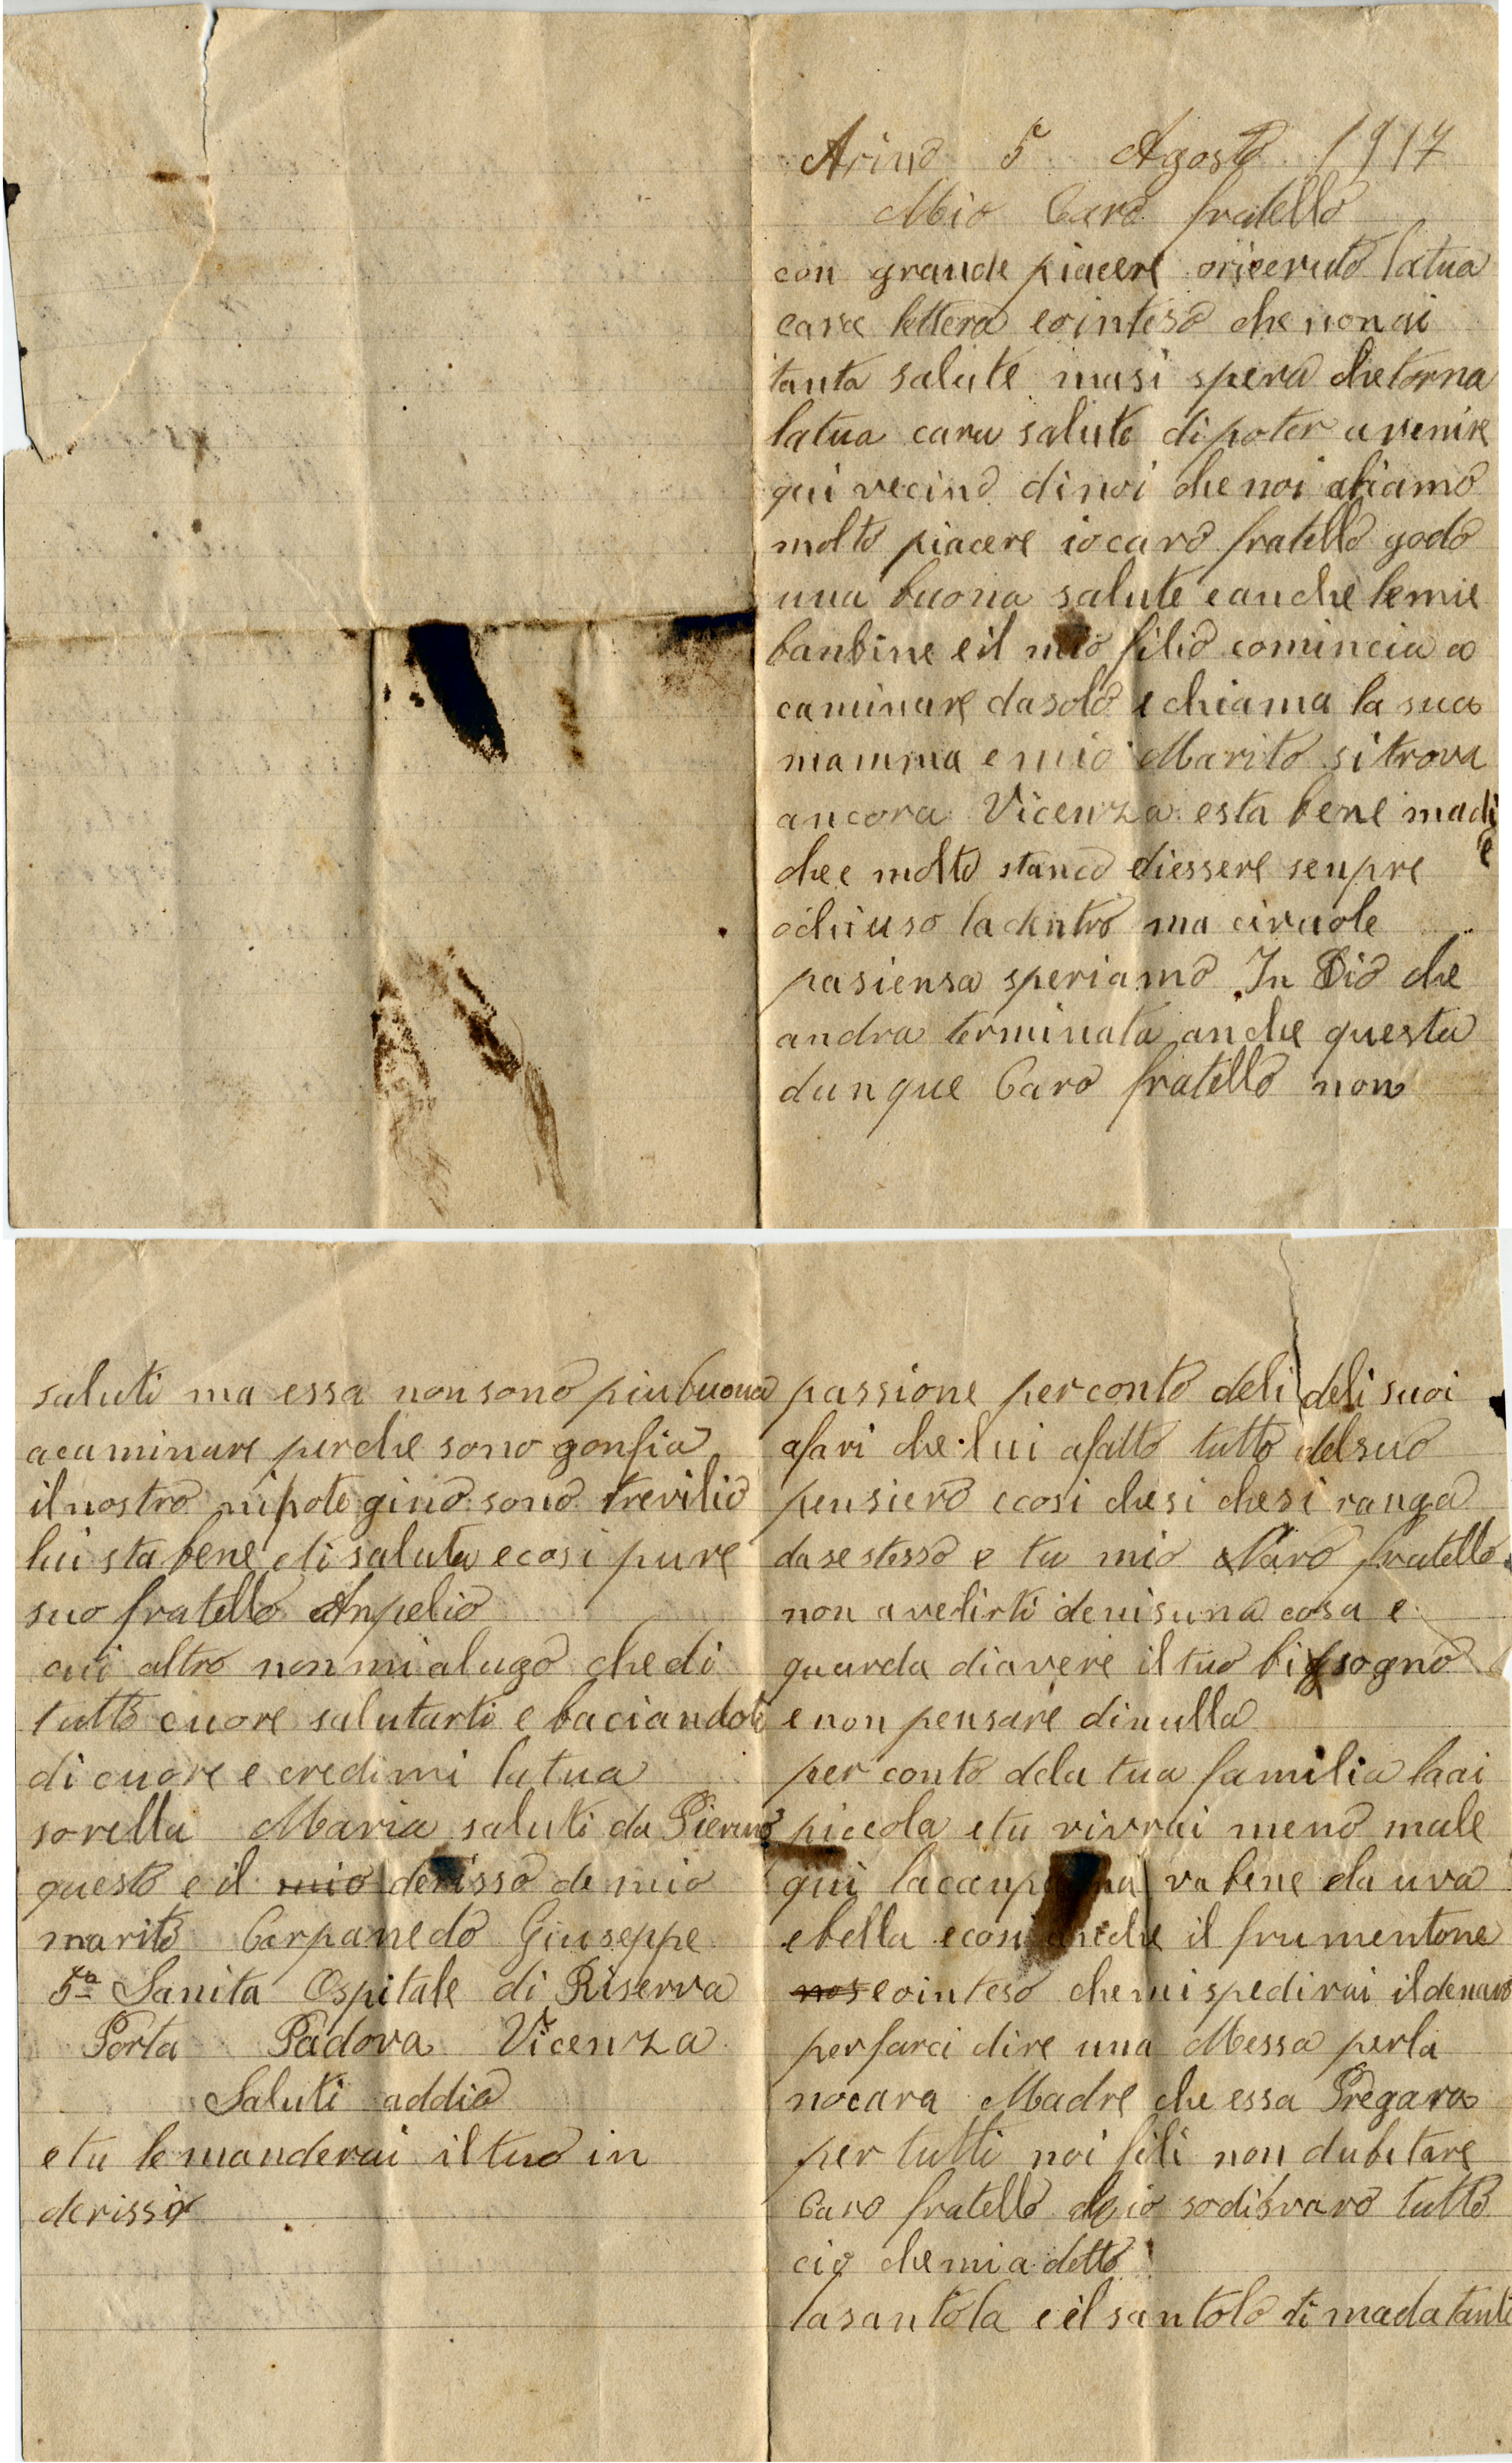 Arino 5 Agosto 1917
Mio Caro fratello
con grande piacere oriceruto latua
cara lettera eointeso che non ai
tanta salute masi spera chetorna
latua cara salute dipoter avenire
qui vecino dinoi che noi abiamo
molto piacere iocaro fratello godo
una buona salute eanche lemie
banbine eil mio filio comincia a
caminare dasolo e chiama la sua
mamma e mio Marito sitrova
ancora Vicenza esta bene madi
e
chee molto stanco diessere senpre
ochiuso ladentro ma civuole
pasiensa speriamo In Dio che
andra terminata anche questa
dunque Caro fratello non
passione perconto deli deli suoi
afari che lui afatto tutto delsuo
pensiero ecosi chesi chesi ranga
dasestesso e tu mio Caro fratello
non avelirti denisuna cosa e
guarda diavere il tuo bisogno
e non pensare dinulla
per conto dela tua familia laai
piccola etu vivrai meno male
qui va bene da uva
ebella ecosi anche il frumentone
nos eointeso chemispedirai ildenaro
perfarci dire una Messa perla
nocara Madre che essa Pregara
per tutti noi fili non dubitare
Caro fratello che io sodisvaro tutto
cio chemia detto
lasantola eil santolo ti mada tanti
saluti ma essa nonsono piubuona
acaminare perche sono gonfia
ilnostro nipote gino sono trevilio
lui sta bene di saluta ecosi pure
suo fratello Anpelio
qui altro non mialugo chedi
tutto cuore salutarti e baciandoti
di cuore e credimi latua
sorella Maria saluti da Pierino
questo e il mio derisso de mio
marito Carpanedo Giuseppe
5ª Sanita Ospitale di Riserva
Porta Padova Vicenza
Saluti addio
etu le manderai iltuo in
derisso